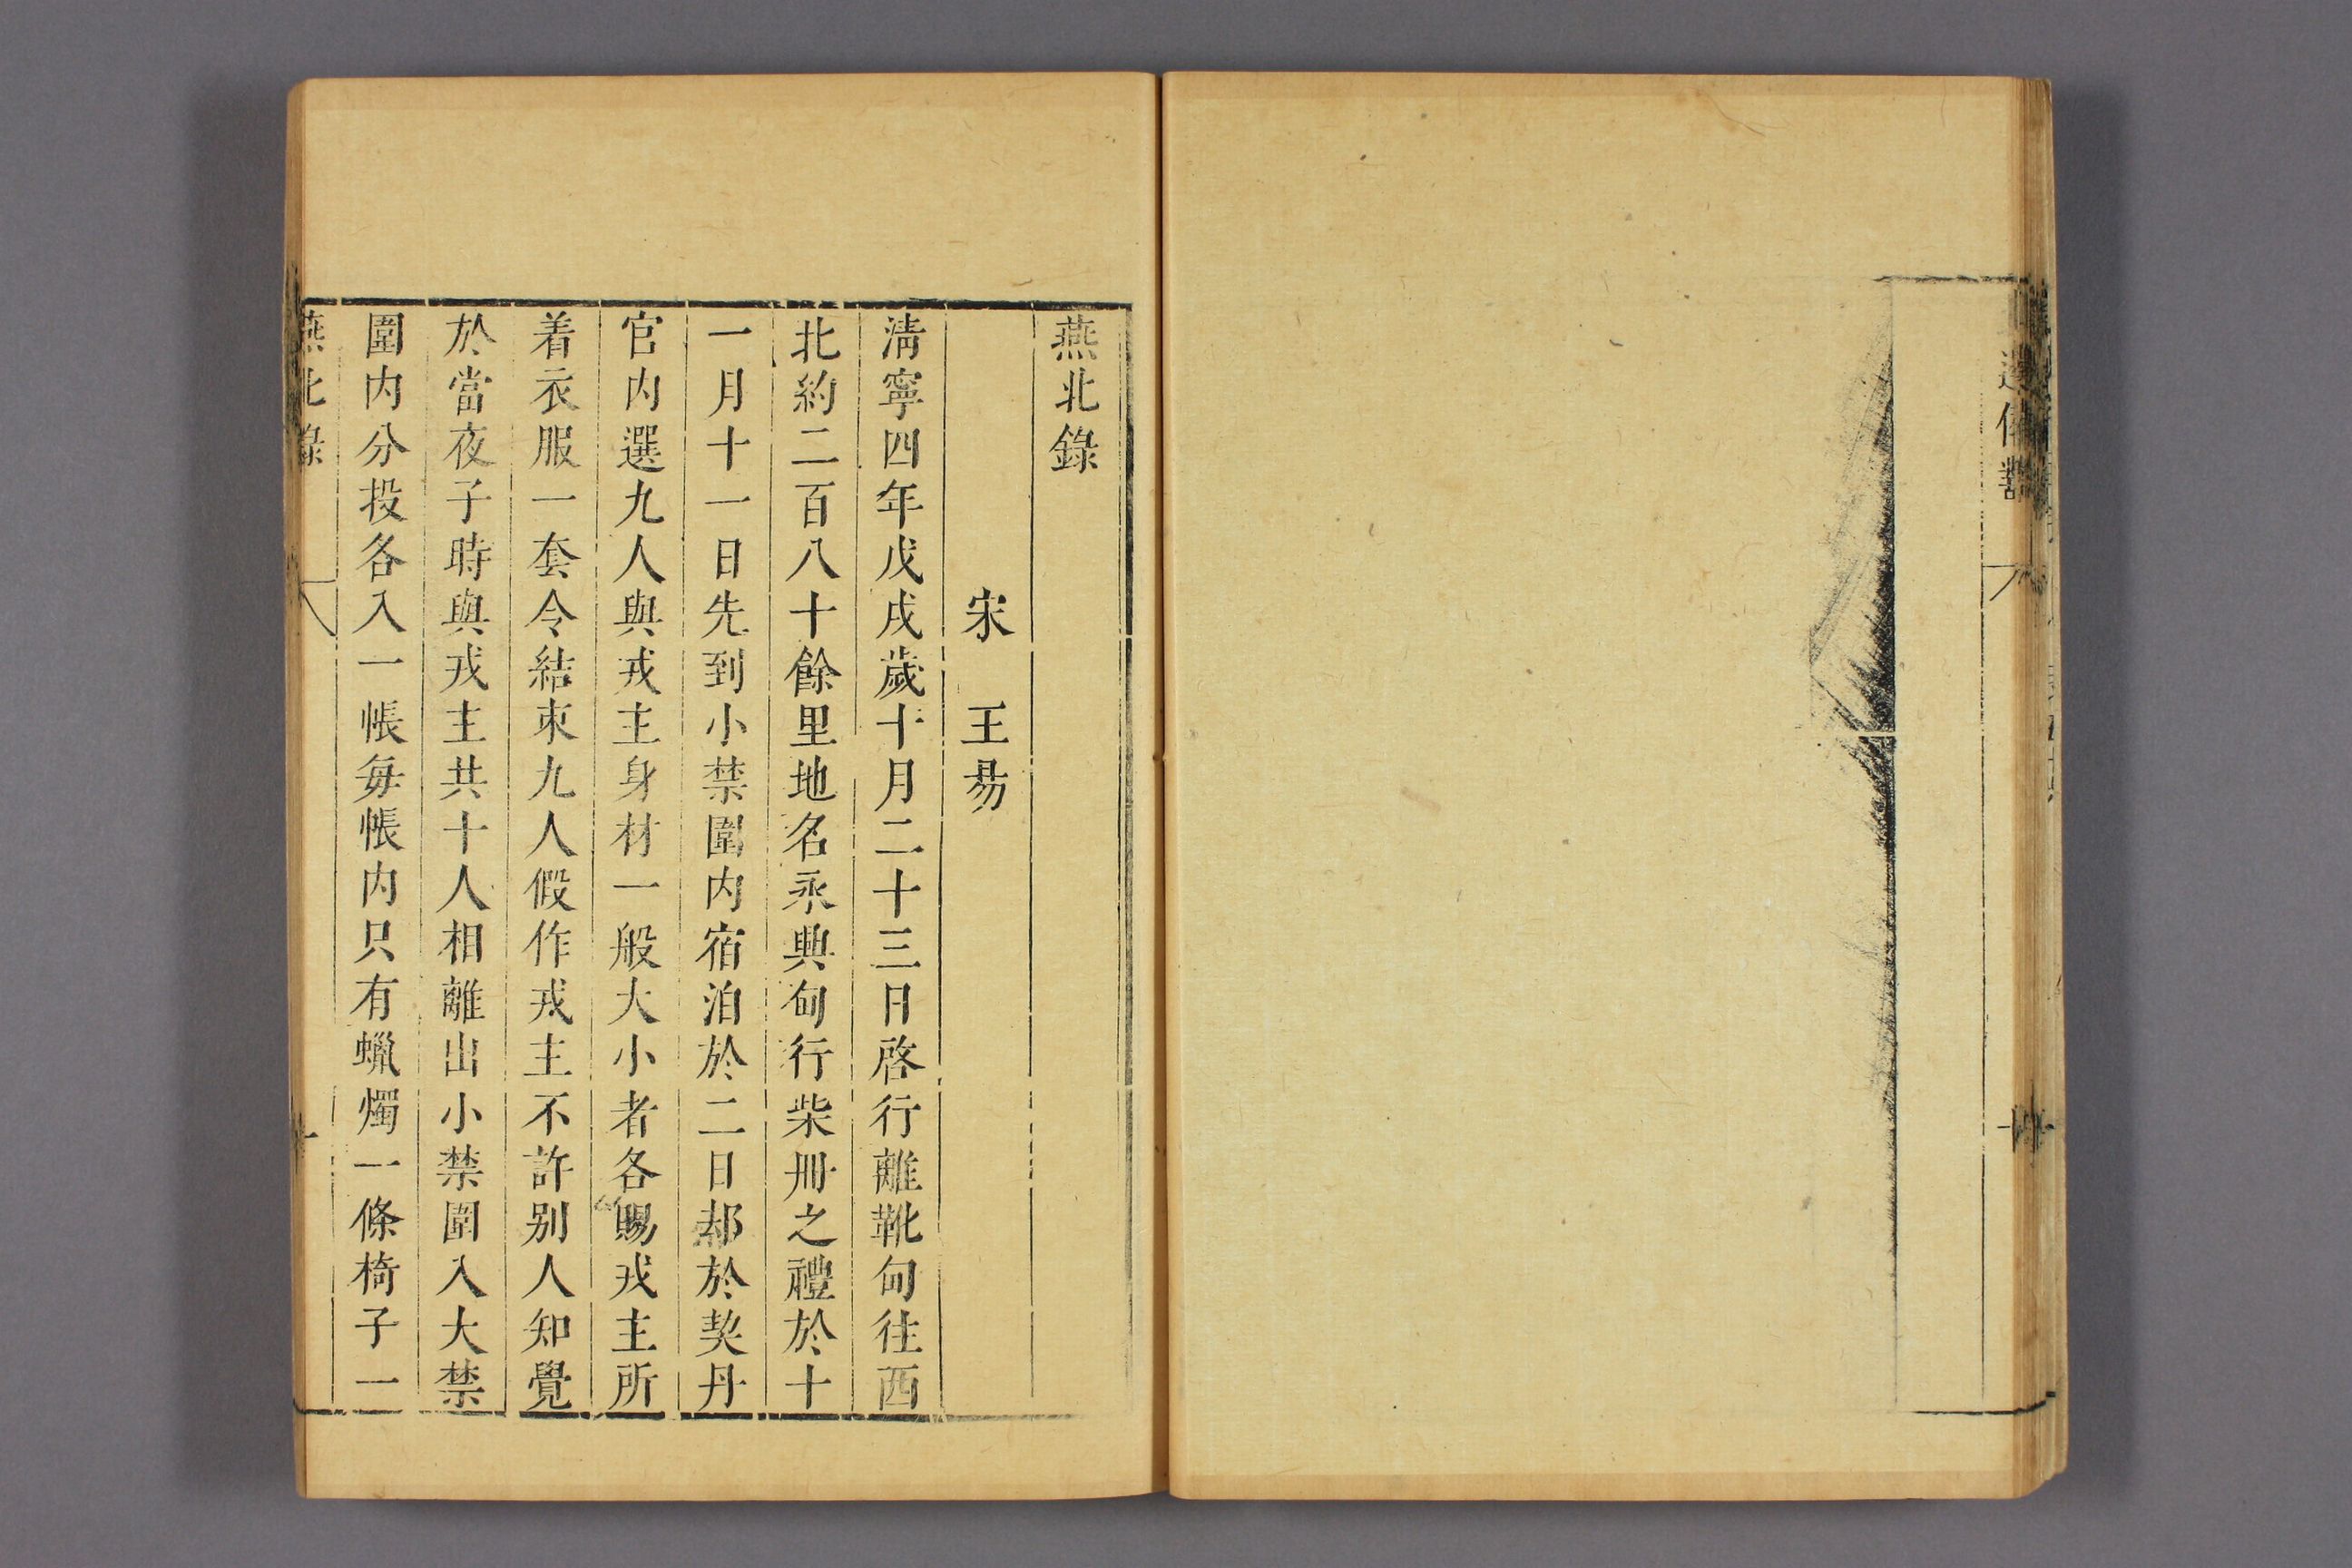 燕北錄
宋　王易
淸寧四年戊戌歲十月二十三日啓行離靴甸往西
北約二百八十餘里地名永興甸行柴冊之禮於十
一月十一日先到小禁圍内宿泊於二日却於契丹
官内選九人與戎主身材一般大小者各賜戎主所
着衣服一套令結束九人假作戎主不許别人知覺
於當夜子時與戎主共十人相離出小禁圍入大禁
圍内分投各入一帳每帳内只有蠟燭一條椅子一
燕北錄
一